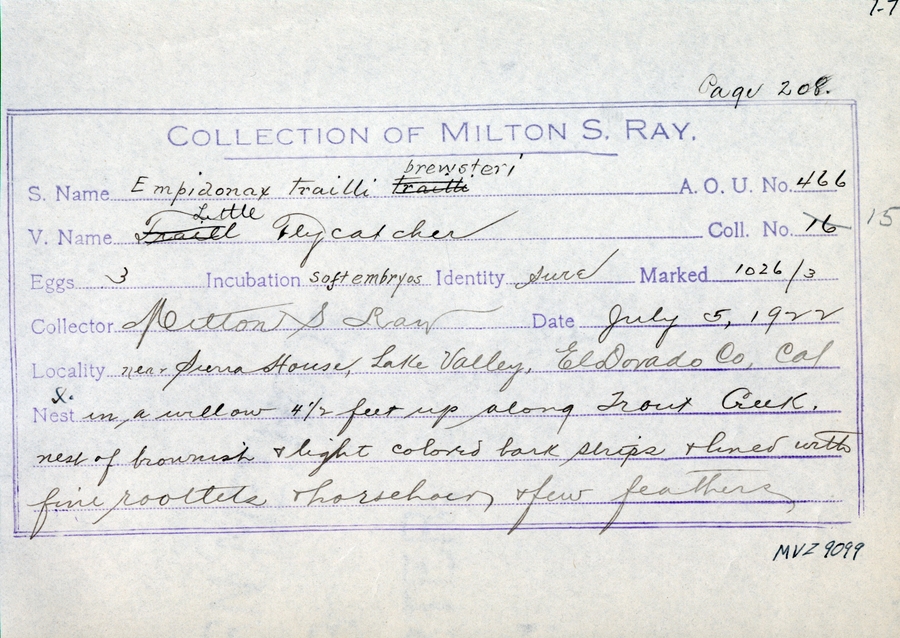 1-7
Page 208.
COLLECTION OF MILTON S. RAY.
brewsteri
S. Name Empidonax trailli trailli A. O. U. No. 466
Little
V. Name Traill Flycatcher Coll. No. 16 15
Eggs 3 Incubation soft embryos Identity sure Marked 1026/3
Collector Milton S Ray Date July 5, 1922
Locality near Sierra House, Lake Valley, ElDorado Co, Cal
&
Nest in a willow 4 1/2 feet up along Trout Creek.
nest of brownish & light colored bark strips & lined with
fine rootlets & horsehair, & few feathers
MVZ 9099